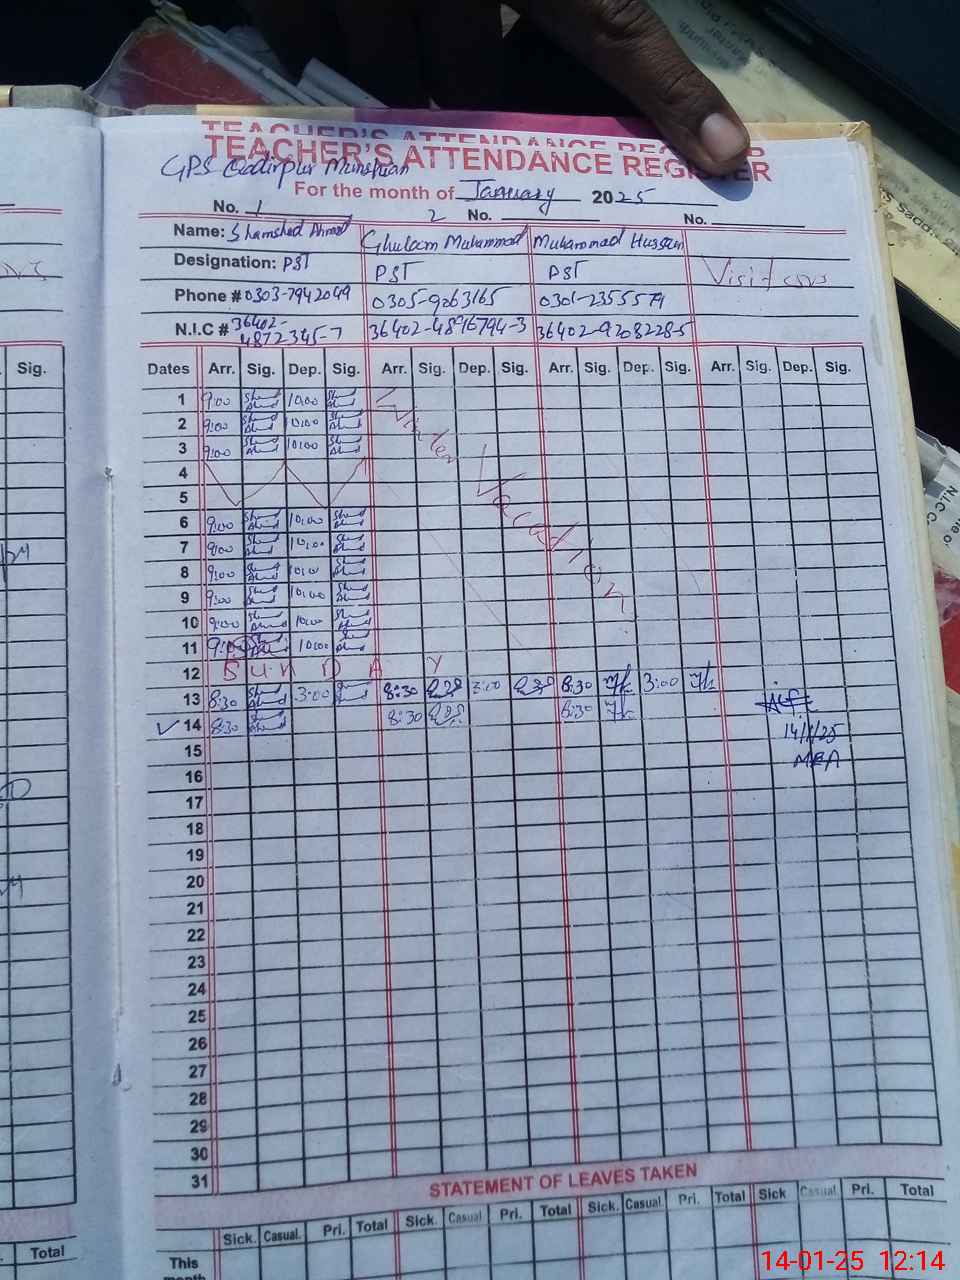 TEACHER'S ATTENDANCE REGISTER
TEACHER'S ATTENDANCE REGISTER
GPS Qadirpur Munshian
For the month of January 2025
No. 1 2 No. No.
Name: Shamshad Ahmad Ghulam Muhammad Muhammad Hussain
Designation: PST PST PST Visitors
Phone # 0303-7942049 0305-9263165
N.I.C # 36402-4872345-7 36402-4896794-3 36402-9208228-5
Sig. Dates Arr. Sig. Dep. Sig. Arr. Sig. Dep. Sig. Arr. Sig. Dep. Sig. Arr. Sig. Dep. Sig.
1 9:00 10:00
2 9:00 10:00
3 9:00 10:00
Winter Vacation
4
5
6 9:00 10:00
7 9:00 10:00
8 9:00 10:00
9 9:00 10:00
10 9:00 10:00
11 9:00 10:00
12 S U N D A Y
13 8:30 3:00 8:30 3:00 8:30 3:00
14 8:30 8:30 8:30
14/1/25
15
MEA
16
17
18
19
20
21
22
23
24
25
26
27
28
29
30
31
STATEMENT OF LEAVES TAKEN
Total Sick. Casual. Pri. Total Sick. Casual Pri. Total Sick. Casual Pri. Total Sick Casual Pri. Total
This
month
14-01-25 12:14